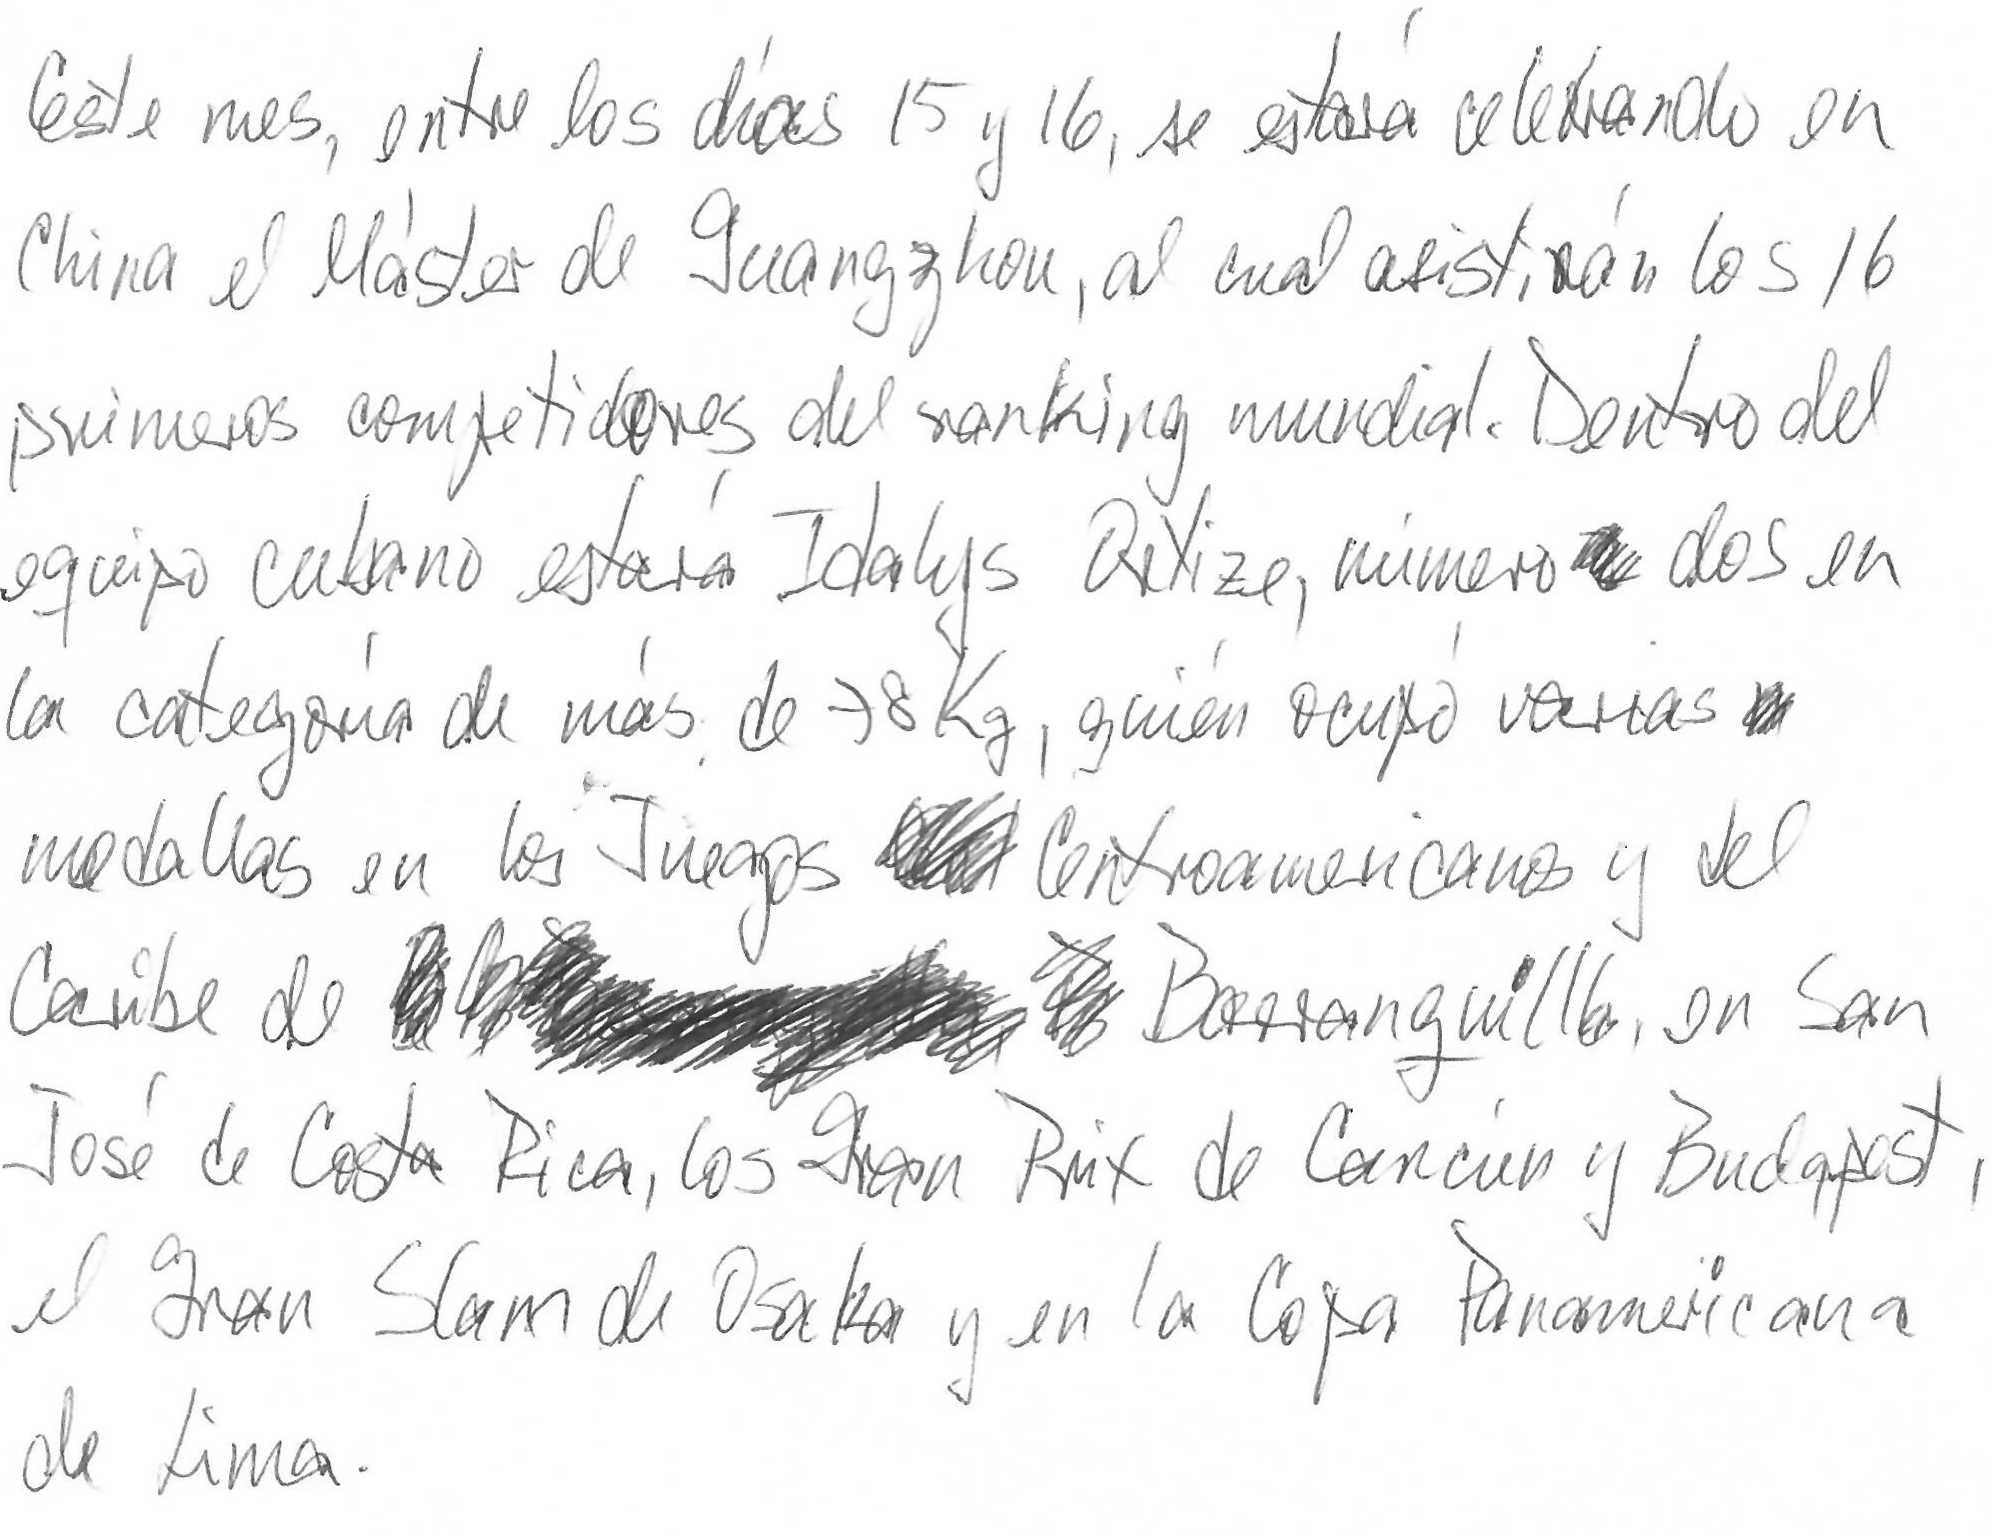 Este mes, entre los días 15 y 16, se estará celebrando en
China el Máster de Guangzhou, al cual asistirán los 16
primeros competidores del ranking mundial. Dentro del
equipo cubano estará Idalys Ortize, número dos en
la categoría de más de 78 Kg, quién ocupó varias
medallas en los Juegos Centroamericanos y del
Caribe de Barranquilla, en San
José de Costa Rica, los Gran Prix de Cancún y Budapest,
el Gran Slam de Osaka y en la Copa Panamericana
de Lima.